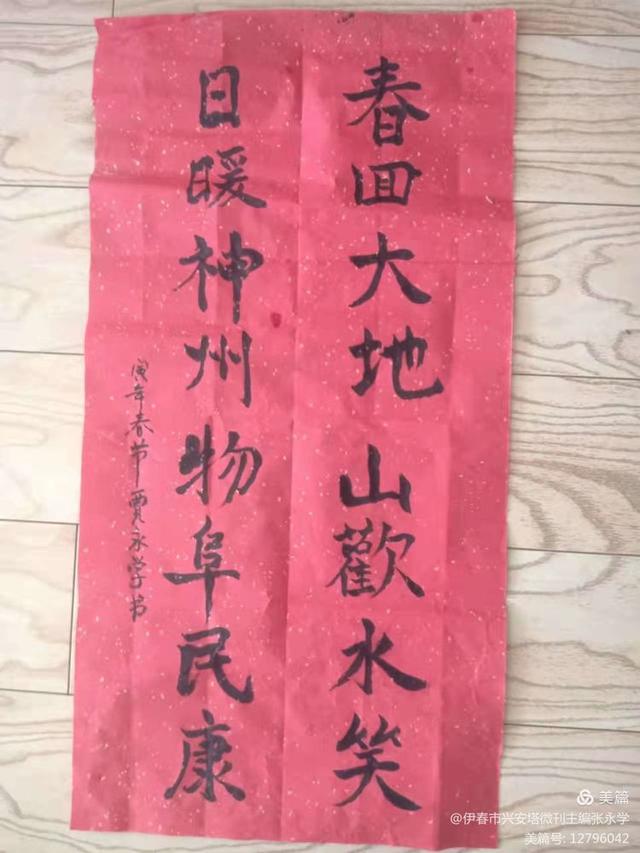 春回大地山歡水笑
日暖神州物阜民康
寅年春节贾永学书
美篇
@伊春市兴安塔微刊主编张永学
美篇号: 12796042